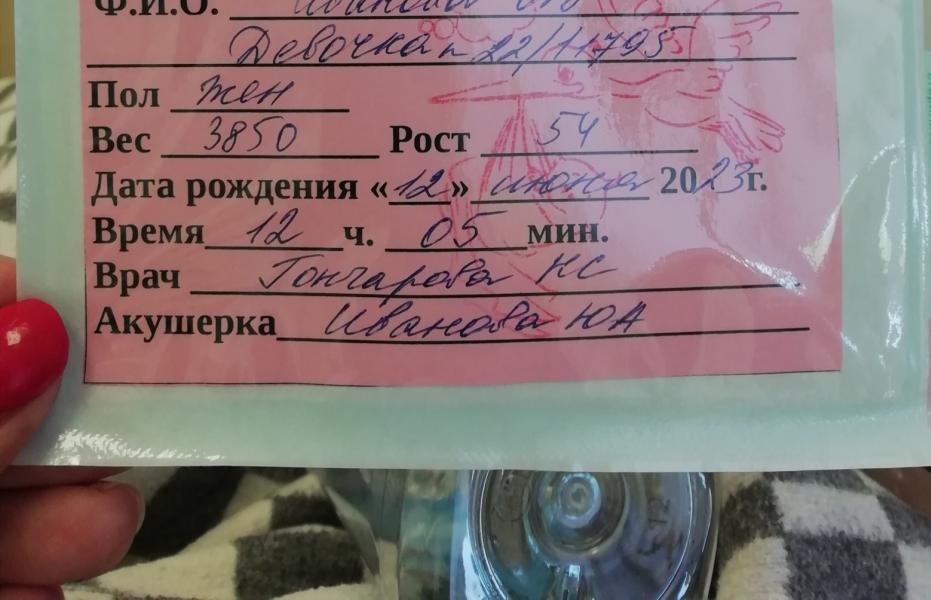 Ф.И.О.
Девочка п 22/11795
Пол жен
Вес 3850 Рост 54
Дата рождения «12» июня 2023г.
Время 12 ч. 05 мин.
Врач Гончарова КС
Акушерка Иванова ЮА